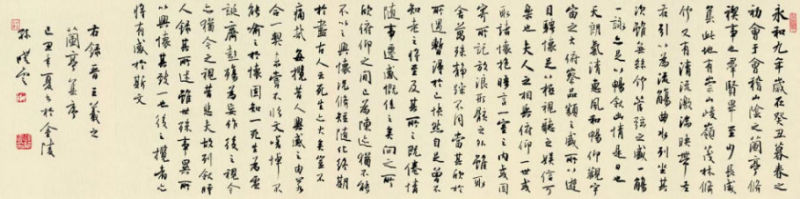 永和九年歲在癸丑暮春之
初會于會稽山陰之蘭亭脩
禊事也羣賢畢至少長咸
集此地有崇山峻嶺茂林脩
竹又有清流激湍映帶左
右引以為流觴曲水列坐其
次雖無絲竹管弦之盛一觴
一詠亦足以暢敘幽情是日也
天朗氣清惠風和暢仰觀宇
宙之大俯察品類之盛所以遊
目騁懷足以極視聽之娛信可
樂也夫人之相與俯仰一世或
取諸懷抱晤言一室之內或因
寄所託放浪形骸之外雖取
舍萬殊靜躁不同當其欣於
所遇暫得於己怏然自足曾不
知老之將至及其所之既惓情
隨事遷感慨係之矣向之所
欣俯仰之間已為陳迹猶不能
不以之興懷況脩短隨化終期
於盡古人云死生亦大矣豈不
痛哉每攬昔人興感之由若
合一契未嘗不臨文嗟悼不
能喻之於懷固知一死生為虛
誕齊彭殤為妄作後之視今
亦猶今之視昔悲夫故列敘時
人錄其所述雖世殊事異所
以興懷其致一也後之攬者亦
將有感於斯文
右錄晉王羲之
蘭亭集序
己丑年夏日於金陵
孫曉雲